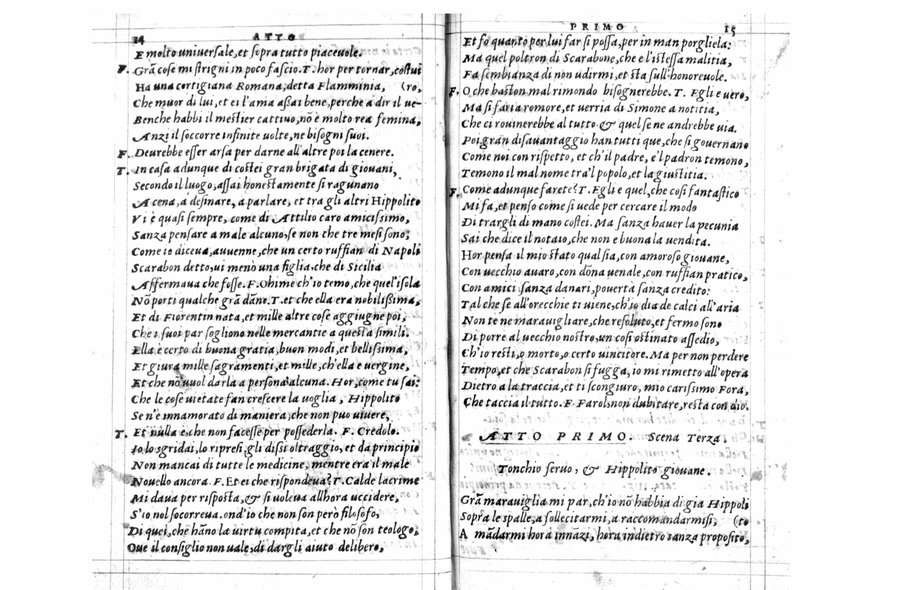 14 ATTO
E molto universale, et sopra tutto piacevole.
F. Grã cose mi strigni in poco fascio. T. hor per tornar, costui
Ha una cortigiana Romana, detta Flamminia, (ro,
Che muor di lui, et ei l'ama aßai bene, perche a dir il ue-
Benche habbi il mestier cattiuo, nõ è molto rea femina,
Anzi il soccorre infinite uolte, ne bisogni suoi.
F. Deurebbe esser arsa per darne all'altre poi la cenere.
T. In casa adunque di costei gran brigata di giovani,
Secondo il luogo, assai honestamente si ragunano
A cena, a desinare, a parlare, et tra gli altri Hippolito
Vi è quasi sempre, come di Attilio caro amicissimo,
Sanza pensare a male alcuno, se non che tre mesi sono,
Come io diceua, auuenne, che un certo ruffian di Napoli
Scarabon detto, ui menò una figlia, che di Sicilia
Affermaua che fosse. F. Ohime ch'io temo, che quel'isola
Nõ porti qualche grã dãne. T. et che ella era nobilißima,
Et di Fiorentin nata, et mille altre cose aggiugne poi,
Che i suoi par sogliono nelle mercantie a questa simili,
Ella è certo di buona gratia, buon modi, et bellissima,
Et giura mille sagramenti, et mille, ch'ella è uergine,
Et che nõ uuol darla a persona alcuna. Hor, come tu sai:
Che le cose uietate fan crescere la uoglia, Hippolito
Se n'è innamorato di maniera, che non puo uiuere,
T. Et nulla è, che non facesse per possederla. F. Credolo.
Io lo sgridai, lo ripresi, gli dissi oltraggio, et da principio
Non mancai di tutte le medicine, mentre era il male
Nouello ancora. F. Et ei che rispondeua? T. Calde lacrime
Mi daua per risposta, & si uoleua allhora uccidere,
S'io nol socorreua. ond'io che non son però filosofo,
Di quei, che hãno la uirtu compita, et che nõ son teologo,
Oue il consiglio non uale, di dargli aiuto delibero,
PRIMO 15
Et fo quanto per lui far si possa, per in man porgliela:
Ma quel poltron di Scarabone, che è l'istessa malitia,
Fa sembianza di non udirmi, et sta sull'honoreuole.
F. O che baston mal rimondo bisognerebbe. T. Egli è uero,
Ma si faria romore, et uerria di Simone a notitia,
Che ci rouinerebbe al tutto & quel se ne andrebbe uia.
Poi gran disauantaggio han tutti que, che si gouernano
Come noi con rispetto, et ch'il padre, e'l padron temono,
Temono il mal nome tra'l popolo, et la giustitia.
F. Come adunque farete? T. Egli è quel, che cosi fantastico
Mi fa, et penso come si uede per cercare il modo
Di trargli di mano costei. Ma sanza hauer la pecunia
Sai che dice il notaio, che non è buona la uendita.
Hor pensa il mio stato qual sia, con amoroso giouane,
Con uecchio auaro, con dõna uenale, con ruffian pratico,
Con amici sanza danari, pouertà sanza credito:
Tal che se all'orecchie ti uiene, ch'io dia de calci all'aria
Non te ne marauigliare, che resoluto, et fermo sono
Di porre al uecchio nostro, un cosi ostinato assedio,
Ch'io resti, o morto, o certo uincitore. Ma per non perdere
Tempo, et che Scarabon si fugga, io mi rimetto all'opera
Dietro a la traccia, et ti scongiuro, mio carissimo Fora,
Che taccia il tutto. F. Farol non dubitare, resta con dio.
ATTO PRIMO. Scena Terza.
Tonchio seruo, & Hippolito giouane.
Grã marauiglia mi par, ch'io nõ habbia di gia Hippoli
Sopra le spalle, a sollecitarmi, a raccomandarmisi, (to
A mãdarmi hora innãzi, hora indietro sanza proposito,